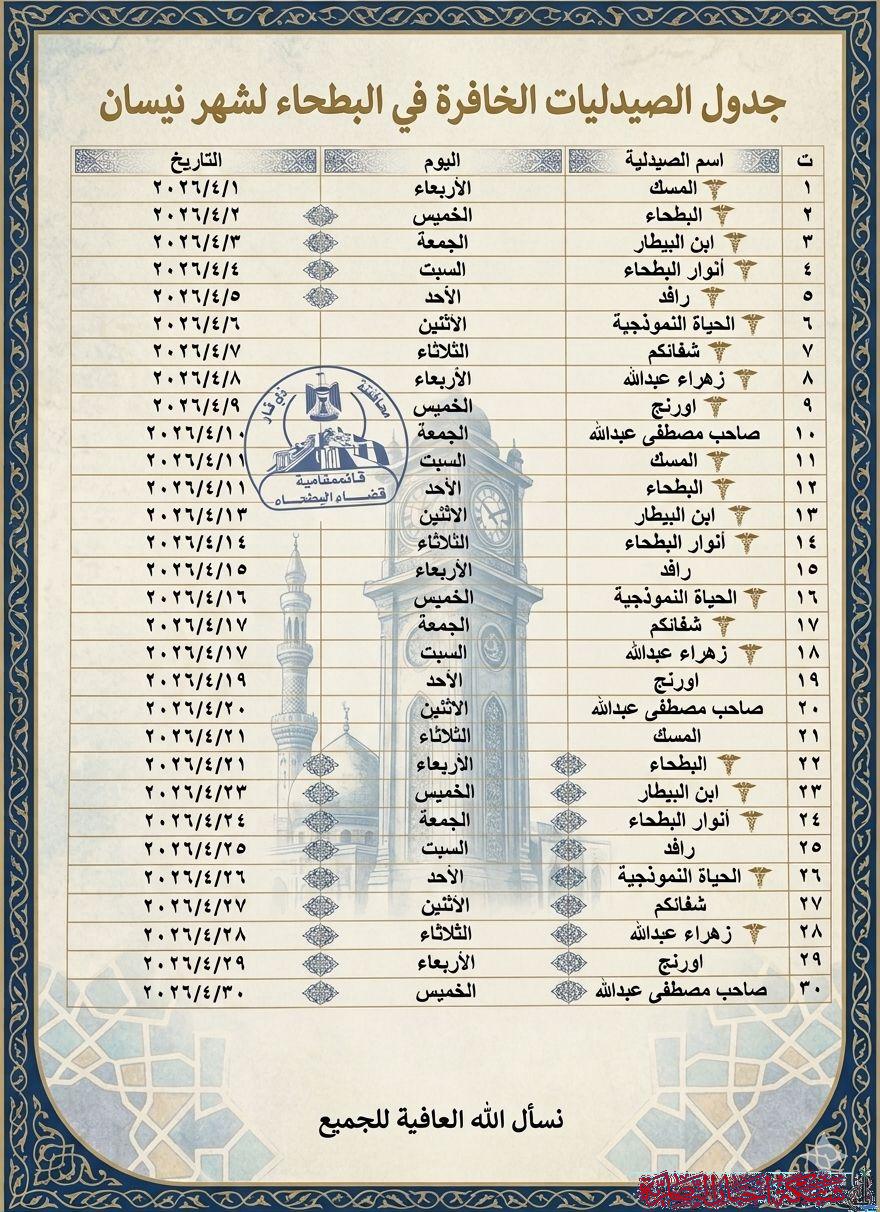 جدول الصيدليات الخافرة في البطحاء لشهر نيسان
ت اسم الصيدلية اليوم التاريخ
١ المسك الأربعاء ٢٠٢٦/٤/١
٢ البطحاء الخميس ٢٠٢٦/٤/٢
٣ ابن البيطار الجمعة ٢٠٢٦/٤/٣
٤ أنوار البطحاء السبت ٢٠٢٦/٤/٤
٥ رافد الأحد ٢٠٢٦/٤/٥
٦ الحياة النموذجية الأثنين ٢٠٢٦/٤/٦
٧ شفائكم الثلاثاء ٢٠٢٦/٤/٧
٨ زهراء عبدالله الأربعاء ٢٠٢٦/٤/٨
٩ اورنج الخميس ٢٠٢٦/٤/٩
١٠ صاحب مصطفى عبدالله الجمعة ٢٠٢٦/٤/١٠
١١ المسك السبت ٢٠٢٦/٤/١١
١٢ البطحاء الأحد ٢٠٢٦/٤/١١
١٣ ابن البيطار الاثنين ٢٠٢٦/٤/١٣
١٤ أنوار البطحاء الثلاثاء ٢٠٢٦/٤/١٤
١٥ رافد الأربعاء ٢٠٢٦/٤/١٥
١٦ الحياة النموذجية الخميس ٢٠٢٦/٤/١٦
١٧ شفائكم الجمعة ٢٠٢٦/٤/١٧
١٨ زهراء عبدالله السبت ٢٠٢٦/٤/١٧
١٩ اورنج الأحد ٢٠٢٦/٤/١٩
٢٠ صاحب مصطفى عبدالله الاثنين ٢٠٢٦/٤/٢٠
٢١ المسك الثلاثاء ٢٠٢٦/٤/٢١
٢٢ البطحاء الأربعاء ٢٠٢٦/٤/٢١
٢٣ ابن البيطار الخميس ٢٠٢٦/٤/٢٣
٢٤ أنوار البطحاء الجمعة ٢٠٢٦/٤/٢٤
٢٥ رافد السبت ٢٠٢٦/٤/٢٥
٢٦ الحياة النموذجية الأحد ٢٠٢٦/٤/٢٦
٢٧ شفائكم الأثنين ٢٠٢٦/٤/٢٧
٢٨ زهراء عبدالله الثلاثاء ٢٠٢٦/٤/٢٨
٢٩ اورنج الأربعاء ٢٠٢٦/٤/٢٩
٣٠ صاحب مصطفى عبدالله الخميس ٢٠٢٦/٤/٣٠
محافظة ذي قار
قائممقامية
قضاء البطحاء
نسأل الله العافية للجميع